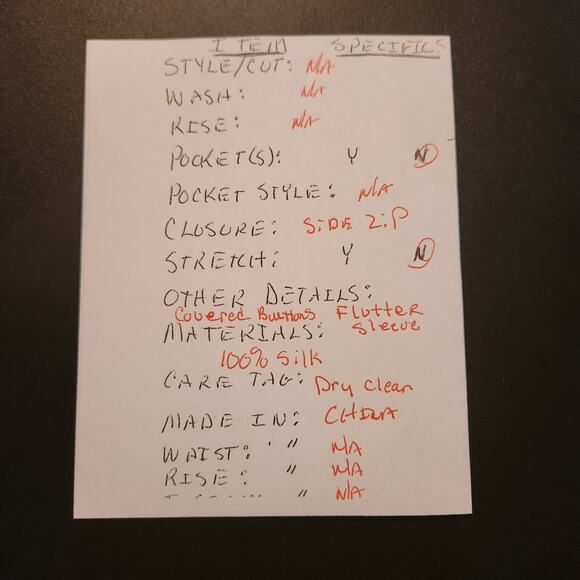 ITEM SPECIFICS
STYLE/CUT: N/A
WASH: N/A
RISE: N/A
POCKET(S): Y N
POCKET STYLE: N/A
CLOSURE: SIDE ZIP
STRETCH: Y N
OTHER DETAILS:
Covered Buttons Flutter
MATERIALS: Sleeve
100% Silk
CARE TAG: Dry Clean
MADE IN: CHINA
WAIST: ' " N/A
RISE: " N/A
" N/A